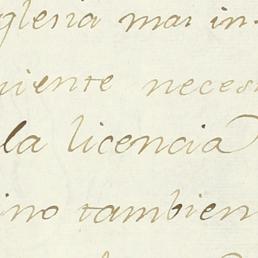 glesia mas in-
niente neces
la licencia
ino tambien